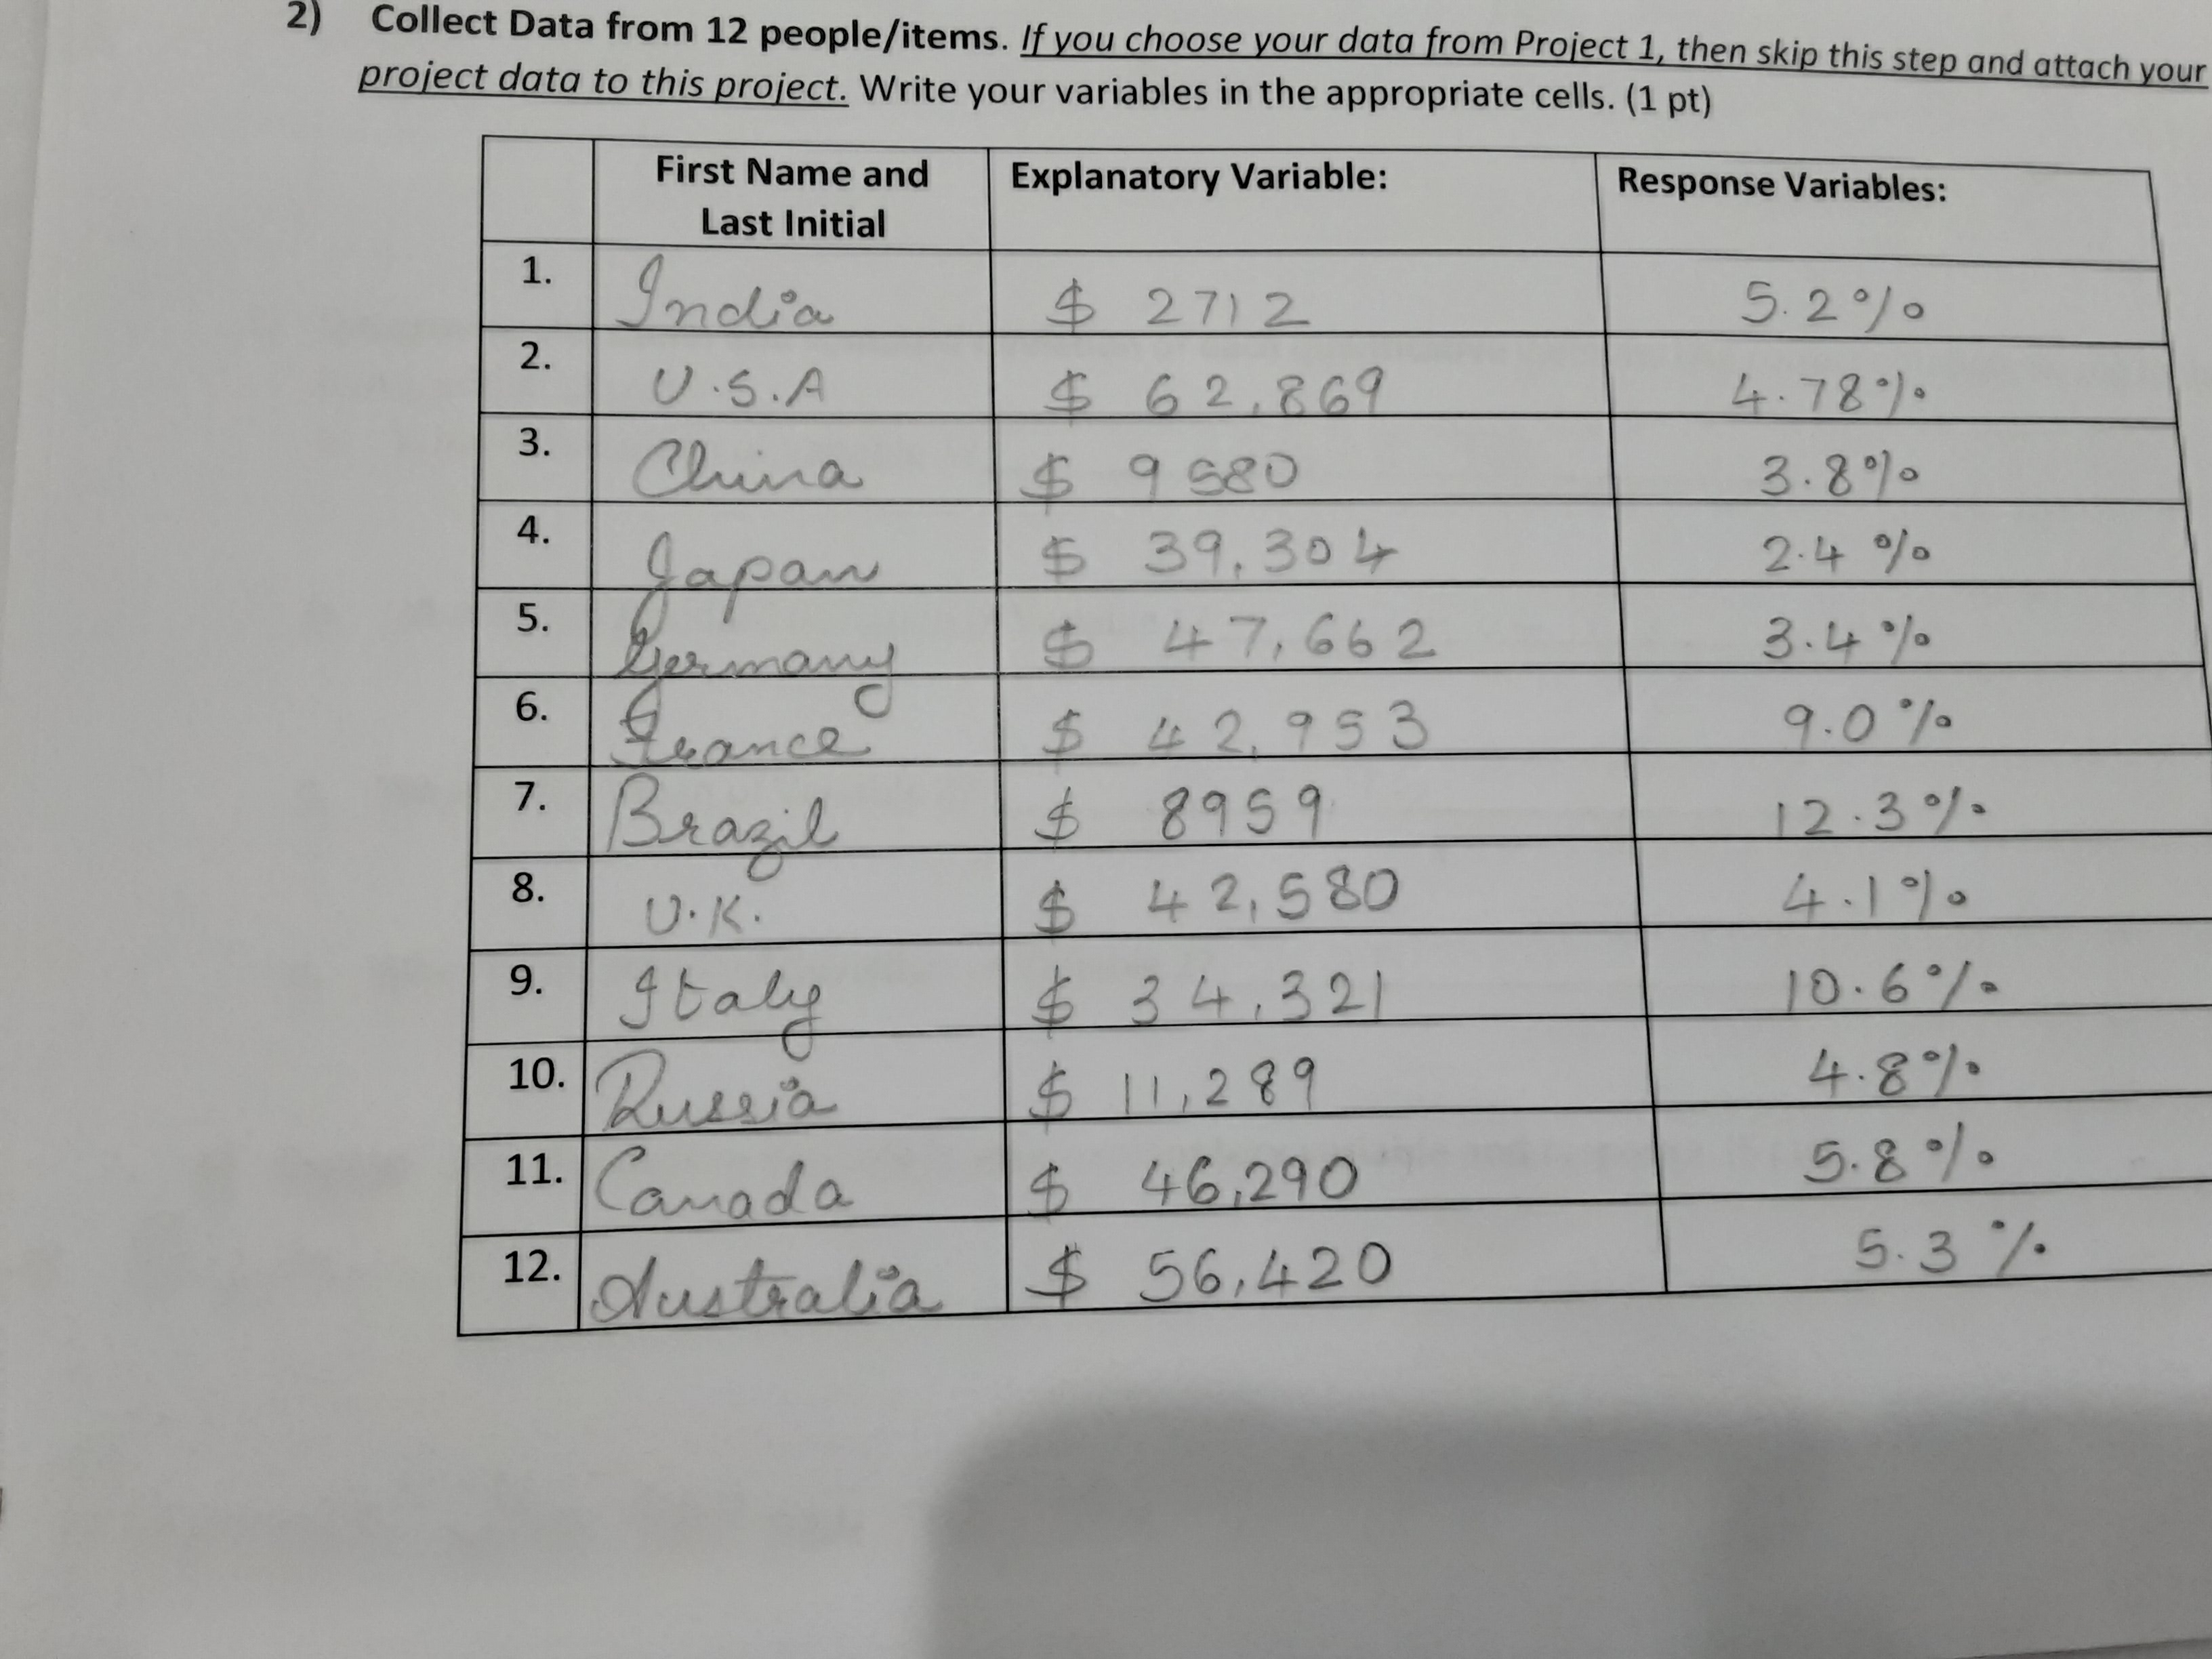 2) Collect Data from 12 people/items. If you choose your data from Project 1, then skip this step and attach your
project data to this project. Write your variables in the appropriate cells. (1 pt)
First Name and Last Initial Explanatory Variable: Response Variables:
1. India $ 2712 5.2%
2. U.S.A $ 62,869 4.78%
3. China $ 9580 3.8%
4. Japan $ 39,304 2.4%
5. Germany $ 47,662 3.4%
6. France $ 42,953 9.0%
7. Brazil $ 8959 12.3%
8. U.K. $ 42,580 4.1%
9. Italy $ 34,321 10.6%
10. Russia $ 11,289 4.8%
11. Canada $ 46,290 5.8%
12. Australia $ 56,420 5.3%